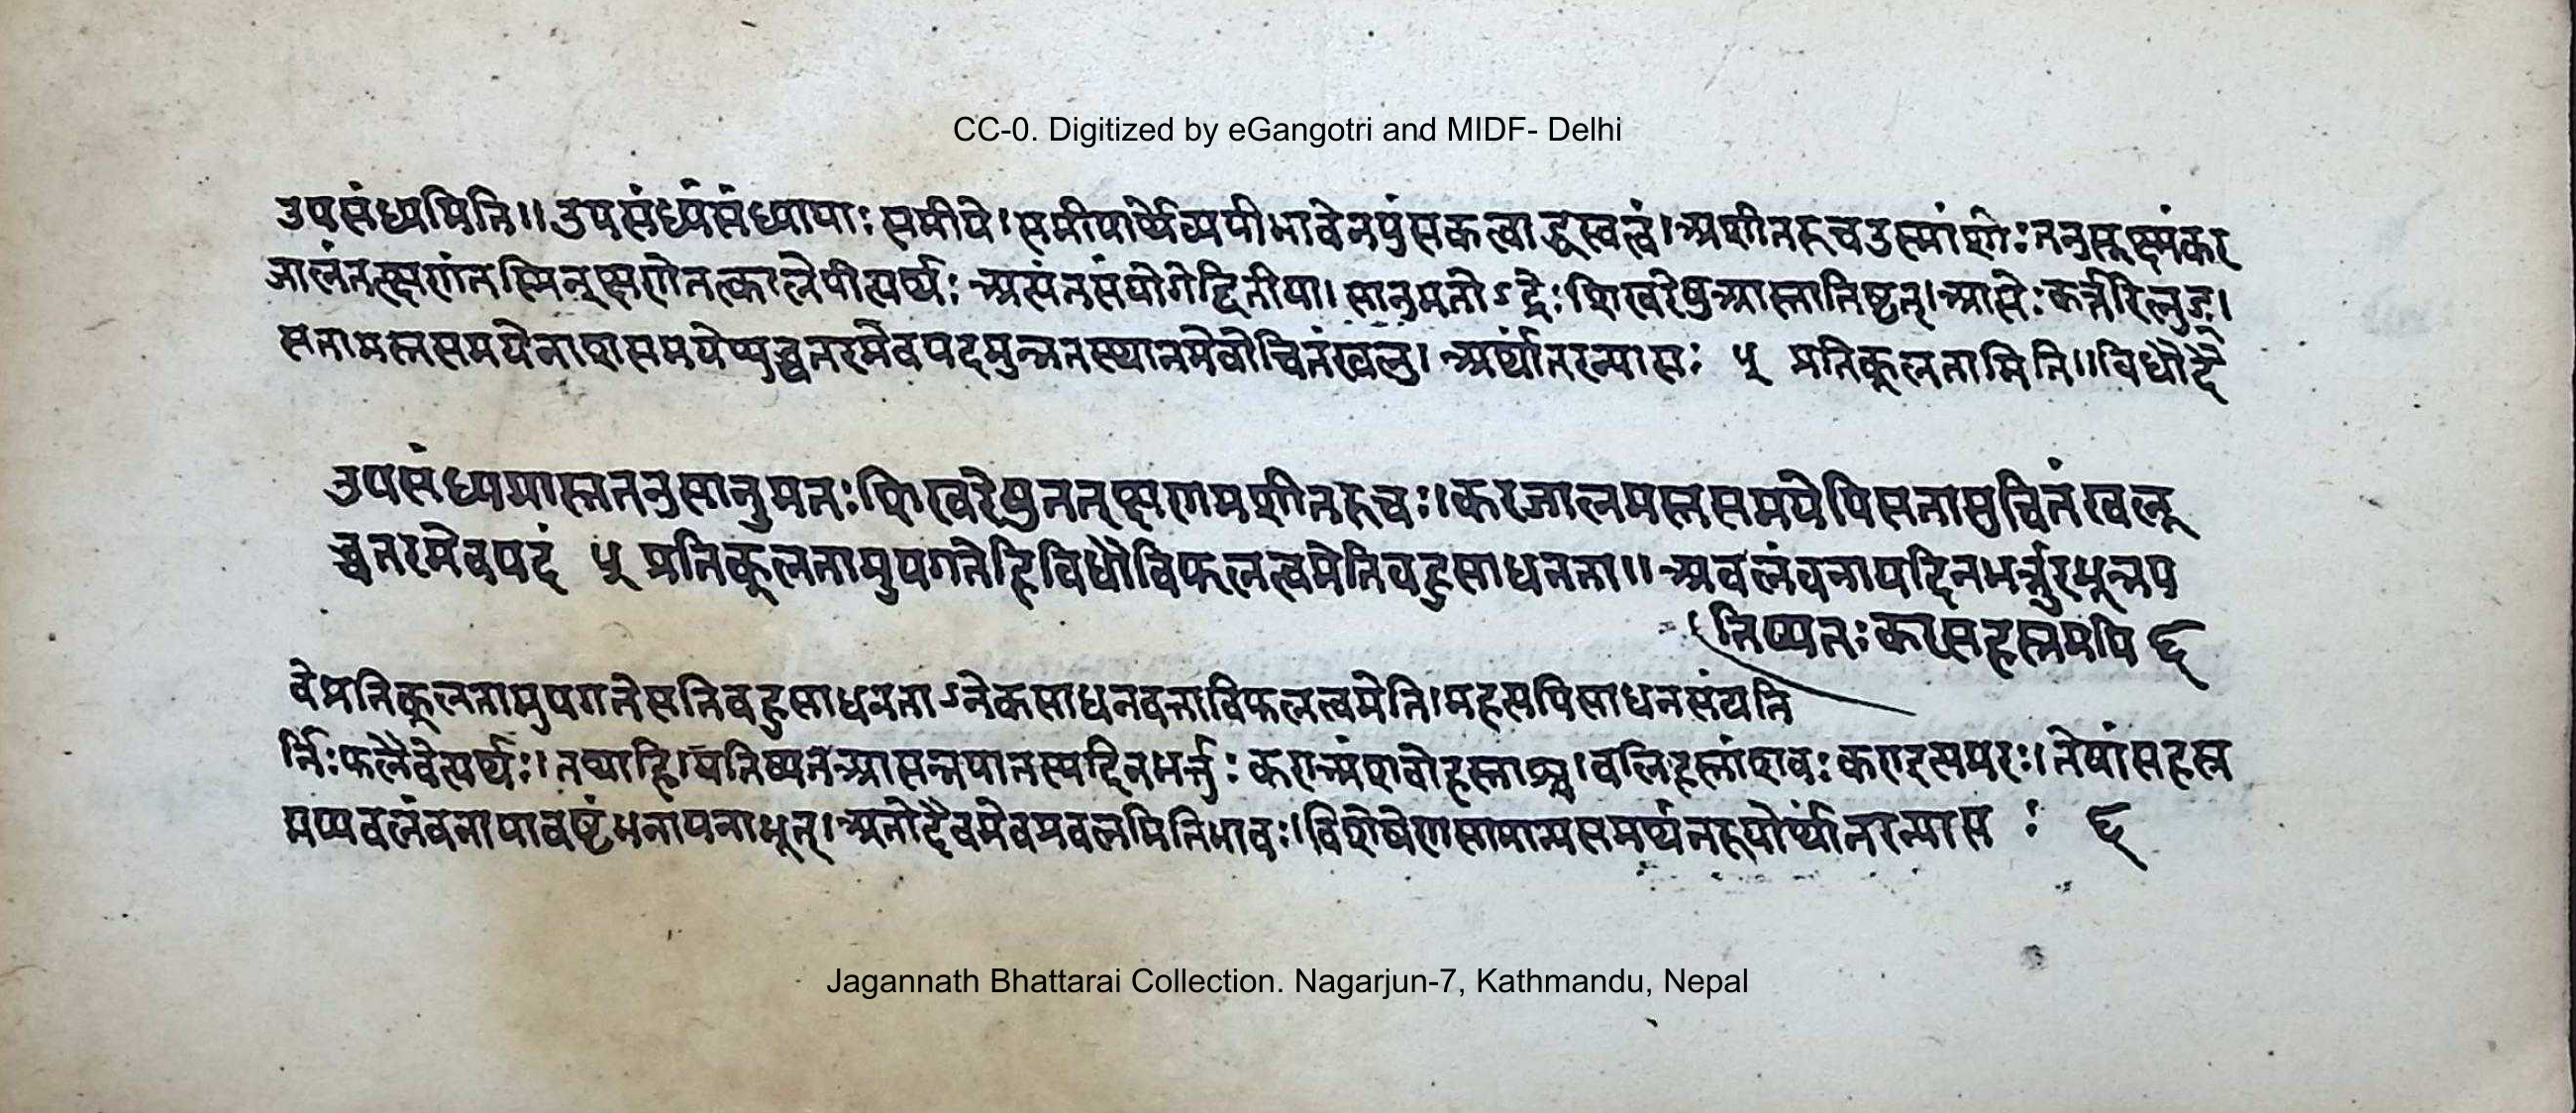 CC-0. Digitized by eGangotri and MIDF- Delhi
उपसंध्यमिति॥ उपसंध्यंसंध्यायाः समीपे।समीपार्थेव्ययीभावेनपुंसकत्वाद्ध्रस्वत्वं।अशीतरुचउस्मांशोःतनुसूक्ष्मंकर
जालंतत्क्षणंतस्मिन्क्षणेतत्कालेपीत्यर्थः अत्यंतसंयोगेद्वितीया। सानुमतोऽद्रेःशिखरेषुआस्तातिष्ठत्।आसेःकर्त्तरिलुङ्।
सतामस्तसमयेनाशसमयेप्युच्चतरमेवपदमुन्नतस्थानमेवोचितंखलु। अर्थांतरन्यासः ५ प्रतिकूलतामिति॥विधौदै
उपसंध्यमास्ततनुसानुमतःशिखरेषुतत्क्षणमशीतरुचः।करजालमस्तसमयेपिसतामुचितंखलू
च्चतरमेवपदं ५ प्रतिकूलतामुपगतेहिविधौविफलत्वमेतिबहुसाधनता॥ अवलंवनायदिनभर्त्तुरभून्नप
तिष्यतःकरसहस्रमपि ६
वेप्रतिकूलतामुपगतेसतिबहुसाधनताऽनेकसाधनवत्ताविफलत्वमेति।महत्यपिसाधनसंपत्ति
र्निःफलैवेत्यर्थः।तथाहि।पतिष्यतआसन्नपातस्यदिनभर्त्तुः कराअंशवोहस्ताश्च।वलिहस्तांशवःकराइत्यमरः।तेषांसहस्र
मप्यवलंवनायावष्टंभनायनाभूत्।अतोदैवमेवप्रवलमितिभावः।विशेषेणसामान्यसमर्थनरूपोर्थांतरन्यास ः ६
Jagannath Bhattarai Collection. Nagarjun-7, Kathmandu, Nepal